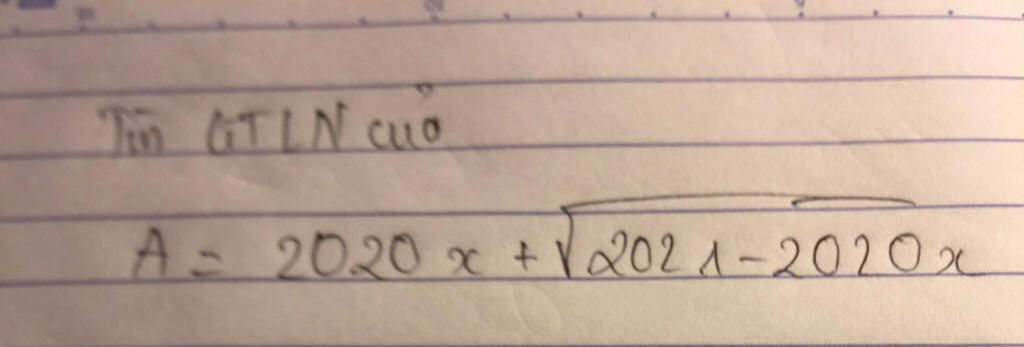 Tìm GTLN của
A = 2020 x + √2021 - 2020 x